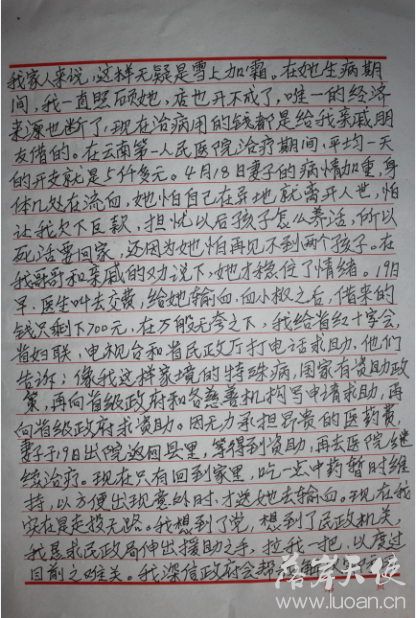 我家人来说,这样无疑是雪上加霜。在她生病期
间,我一直照顾她,店也开不成了,唯一的经济
来源也断了,现在治病用的钱都是给我亲戚朋
友借的。在云南第一人民医院治疗期间,平均一天
的开支就是5仟多元。4月18日妻子的病情加重,身
体几处在流血,她怕自己在异地就离开人世,怕
让我欠下巨款,担忧以后孩子怎么养活,所以
死活要回家,还因为她怕再见不到两个孩子。在
我哥哥和亲戚的劝说下,她才稳住了情绪。19日
早,医生叫去交费,给她输血、血小板之后,借来的
钱只剩下700元,在万般无夸之下,我给省红十字会,
省妇联,电视台和省民政厅打电话求助,他们
告诉:像我这样家境的特殊病,国家有资助政
策,再向省级政府和各慈善机构写申请求助,再
向省级政府求资助。因无力承担昂贵的医药费,
妻子于19日出院返回县里,等得到资助,再去医院继
续治疗。现在只有回到家里,吃一些中药暂时维
持,以方便出现意外时,才送她去输血。现在我
实在是走投无路。我想到了党,想到了民政机关,
我恳求民政局伸出援助之手,拉我一把,以度过
目前之难关。我深信政府会帮
落岸天使
www.luoan.cn